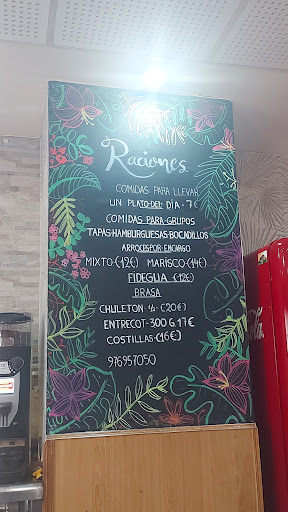 Raciones
COMIDAS PARA LLEVAR
UN PLATO DEL DÍA · 7€
COMIDAS PARA GRUPOS
TAPAS·HAMBURGUESAS·BOCADILLOS
ARROCES POR ENCARGO
MIXTO·(12€) MARISCO·(14€)
FIDEGUA (12€)
BRASA
CHULETON (20€)
ENTRECOT·300G.17€
COSTILLAS·(16€)
976957050